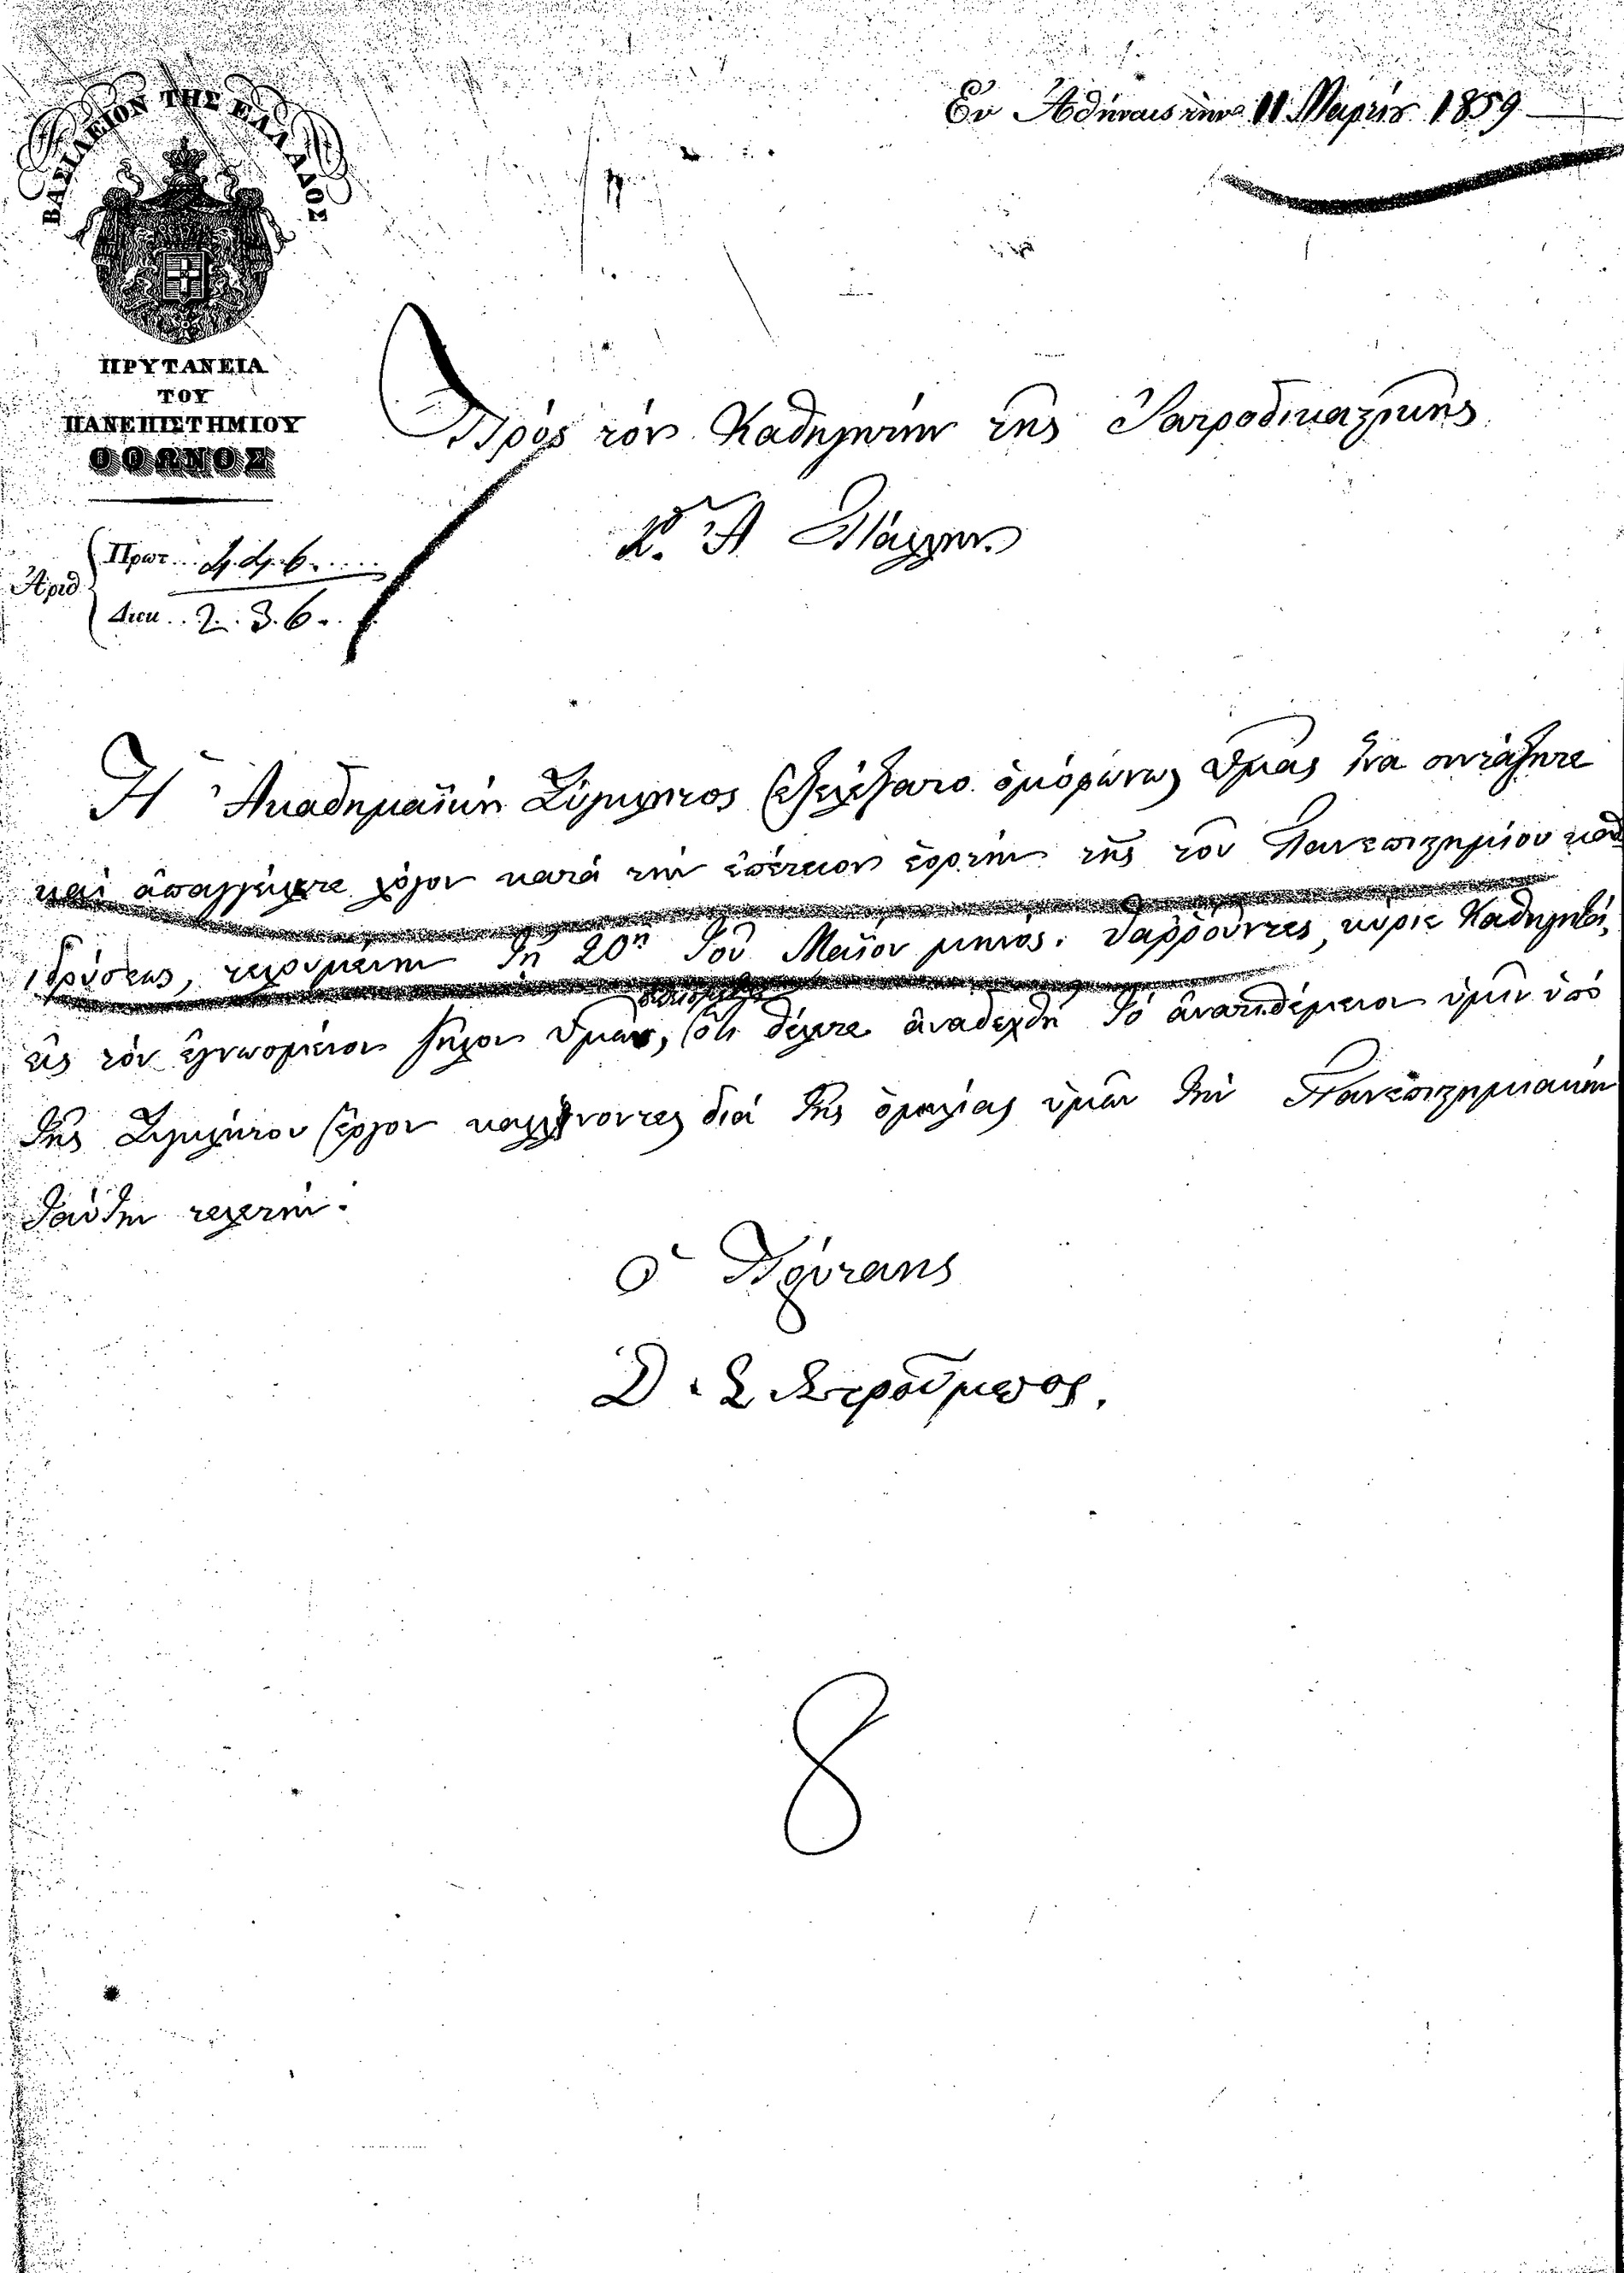 Ἐν Ἀθήναις τὴν 11 Μαρτίου 1859
ΒΑΣΙΛΕΙΟΝ ΤΗΣ ΕΛΛΑΔΟΣ
ΠΡΥΤΑΝΕΙΑ
ΤΟΥ
ΠΑΝΕΠΙΣΤΗΜΙΟΥ
ΟΘΩΝΟΣ
Ἀριθ
Πρωτ... 446.....
Διεκ.. 236..
Πρὸς τὸν Καθηγητὴν τῆς Ἰατροδικαστικῆς
Κ. Α
Ἡ Ἀκαδημαϊκὴ Σύγκλητος ἐξελέξατο ὁμόφώνως Ὑμᾶς ἵνα συντάξητε
καὶ ἀπαγγείλητε λόγον κατὰ τὴν ἐπέτειον ἑορτὴν τῆς τοῦ Πανεπιστημίου καθ
ιδρύσεως, τελουμένην τῇ 20ῃ τοῦ Μαΐου μηνός. Θαῤῥοῦντες, κύριε Καθηγητά,
εἰς τὸν ἐγνωσμένον ζῆλον Ὑμῶν, ὅτι θέλετε ἀναδεχθῆ τὸ ἀνατιθέμενον ὑμῖν ὑπὸ
τῆς Συγκλήτου ἔργον καλλύνοντες διὰ τῆς ὁμιλίας ὑμῶν τὴν Πανεπιστημιακὴν
ταύτην τελετήν.
Ὁ Πρύτανις
Δ. Σ Στροῦμπος.
8